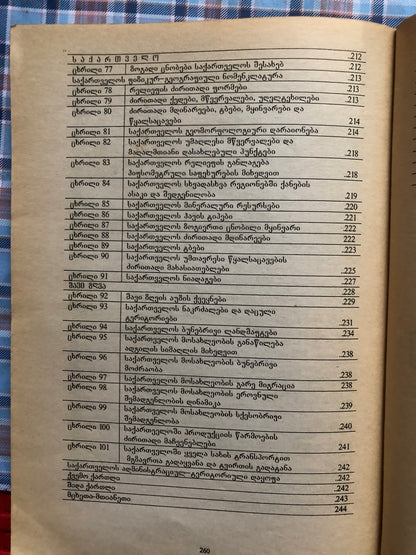 საქართველო .212
ცხრილი 77 ზოგადი ცნობები საქართველოს შესახებ .212
საქართველოს ფიზიკურ-გეოგრაფიული ნომენკლატურა .213
ცხრილი 78 რელიეფის ძირითადი ფორმები .213
ცხრილი 79 ძირითადი ქედები, მწვერვალები, უღელტეხილები .213
ცხრილი 80 ძირითადი მდინარეები, ტბები, მყინვარები და
წყალსაცავები 214
ცხრილი 81 საქართველოს გეომორფოლოგიური დარაიონება 214
ცხრილი 82 საქართველოს უმაღლესი მწვერვალები და
მაღალმთიანი დასახლებული პუნქტები .218
ცხრილი 83 საქართველოს რელიეფის განლაგება
ჰიფსომეტრული საფეხურების მიხედვით .218
ცხრილი 84 საქართველოს სხვადასხვა რეგიონებში ქანების
ასაკი და შედგენილობა .219
ცხრილი 85 საქართველოს მინერალური რესურსები .220
ცხრილი 86 საქართველოს ჰავის ტიპები .221
ცხრილი 87 საქართველოს ზოგიერთი ცნობილი მყინვარი 222
ცხრილი 88 საქართველოს ძირითადი მდინარეები 222
ცხრილი 89 საქართველოს ტბები .223
ცხრილი 90 საქართველოს უმთავრესი წყალსაცავების
ძირითადი მახასიათებლები .225
ცხრილი 91 საქართველოს ნიადაგები .227
შავი ზღვა .228
ცხრილი 92 შავი ზღვის აუზის ქვეყნები .229
ცხრილი 93 საქართველოს ნაკრძალები და დაცული
ტერიტორიები .231
ცხრილი 94 საქართველოს ბუნებრივი ლანდშაფტები .234
ცხრილი 95 საქართველოს მოსახლეობის განაწილება
ადგილის სიმაღლის მიხედვით .238
ცხრილი 96 საქართველოს მოსახლეობის ბუნებრივი
მოძრაობა .238
ცხრილი 97 საქართველოს მოსახლეობის გარე მიგრაცია 238
ცხრილი 98 საქართველოს მოსახლეობის ეროვნული
შემადგენლობის დინამიკა .239
ცხრილი 99 საქართველოს მოსახლეობის სქესობრივი
შემადგენლობა .240
ცხრილი 100 საქართველოში პროდუქციის წარმოების
ძირითადი მაჩვენებლები 241
ცხრილი 101 საქართველოში ყველა სახის ტრანსპორტით
მგზავრთა გადაყვანა და ტვირთის გადატანა .242
საქართველოს ადმინისტრაციულ-ტერიტორიული დაყოფა .242
ქვემო ქართლი .242
შიდა ქართლი .243
მცხეთა-მთიანეთი 244
260